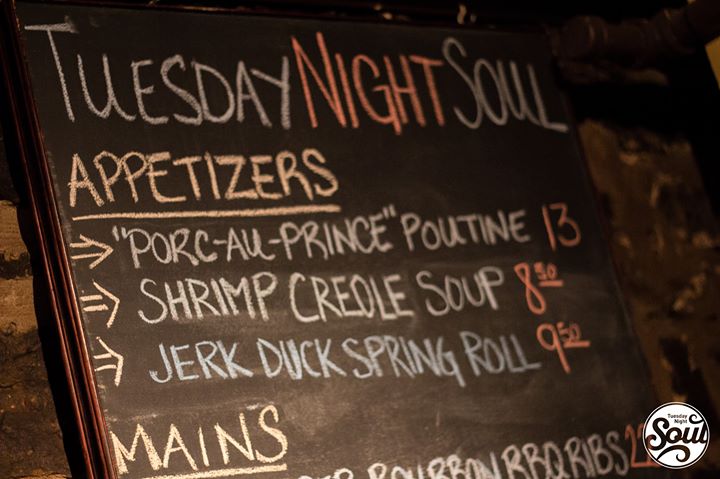 TUESDAY NIGHT SOUL
APPETIZERS
⇒ "PORC-AU-PRINCE" POUTINE 13
⇒ SHRIMP CREOLE SOUP 8 50
⇒ JERK DUCK SPRING ROLL 9 50
MAINS
BOURBON BBQ RIBS
Tuesday
Night
Soul